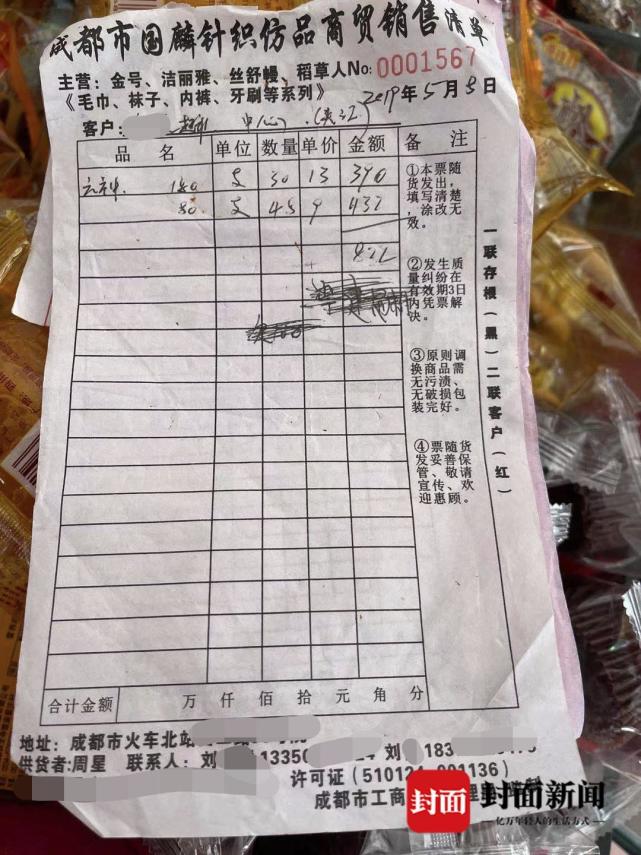 成都市国麟针织仿品商贸销售清单
主营：金号、洁丽雅、丝舒幔、稻草人No:0001567
《毛巾、袜子、内裤、牙刷等系列》 2019年5月8日
客户： 中心 (夹江)
品 名 单位 数量 单价 金额 备 注
云神 180 支 30 13 390
80 支 48 9 432
822
①本票随
货发出，
填写清楚
，涂改无
效。
②发生质
量纠纷在
有效期3日
内凭票解
决。
③原则调
换商品需
无污渍、
无破损包
装完好。
④票随货
发妥善保
管、敬请
宣传、欢
迎惠顾。
一联存根（黑）二联客户（红）
合计金额 万 仟 佰 拾 元 角 分
地址：成都市火车北站
供货者:周星 联系人：刘 13350 24 刘 183
许可证（510124 001136）
成都市工商
封面 封面新闻
亿万年轻人的生活方式